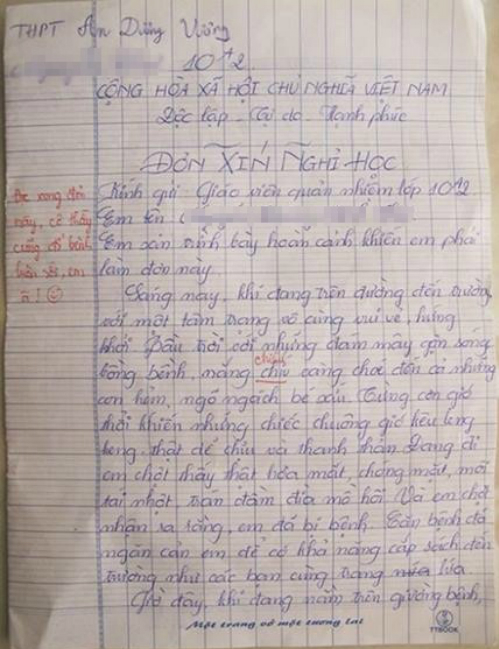 THPT An Dương Vương
10A2
CỘNG HÒA XÃ HỘI CHỦ NGHĨA VIỆT NAM
Độc lập - Tự do - Hạnh phúc
ĐƠN XIN NGHỈ HỌC
Kính gửi Giáo viên quản nhiệm lớp 10A2
Em tên
Em xin trình bày hoàn cảnh khiến em phải
làm đơn này.
Sáng nay, khi đang trên đường đến trường
với một tâm trạng vô cùng vui vẻ, hứng
khởi. Bầu trời với những đám mây gợn sóng
bồng bềnh, nắng chíu càng chói đến cả những
chiếu
con hẻm, ngõ ngách bé xíu. Từng cơn gió
thổi khiến những chiếc chuông gió kêu leng
keng, thật dễ chịu và thanh thản. Đang đi
em chợt thấy thật hoa mắt, chóng mặt, môi
tái nhợt, trán đầm đìa mồ hôi. Và em chợt
nhận ra rằng, em đã bị bệnh. Căn bệnh đã
ngăn cản em để có khả năng cắp sách đến
trường như các bạn cùng trang lứa.
Giờ đây, khi đang nằm trên giường bệnh,
Đọc xong đơn
này, cô thấy
cũng đổ bệnh
luôn rồi, em
ạ!
Một trang vở một tương lai
TTBOOK